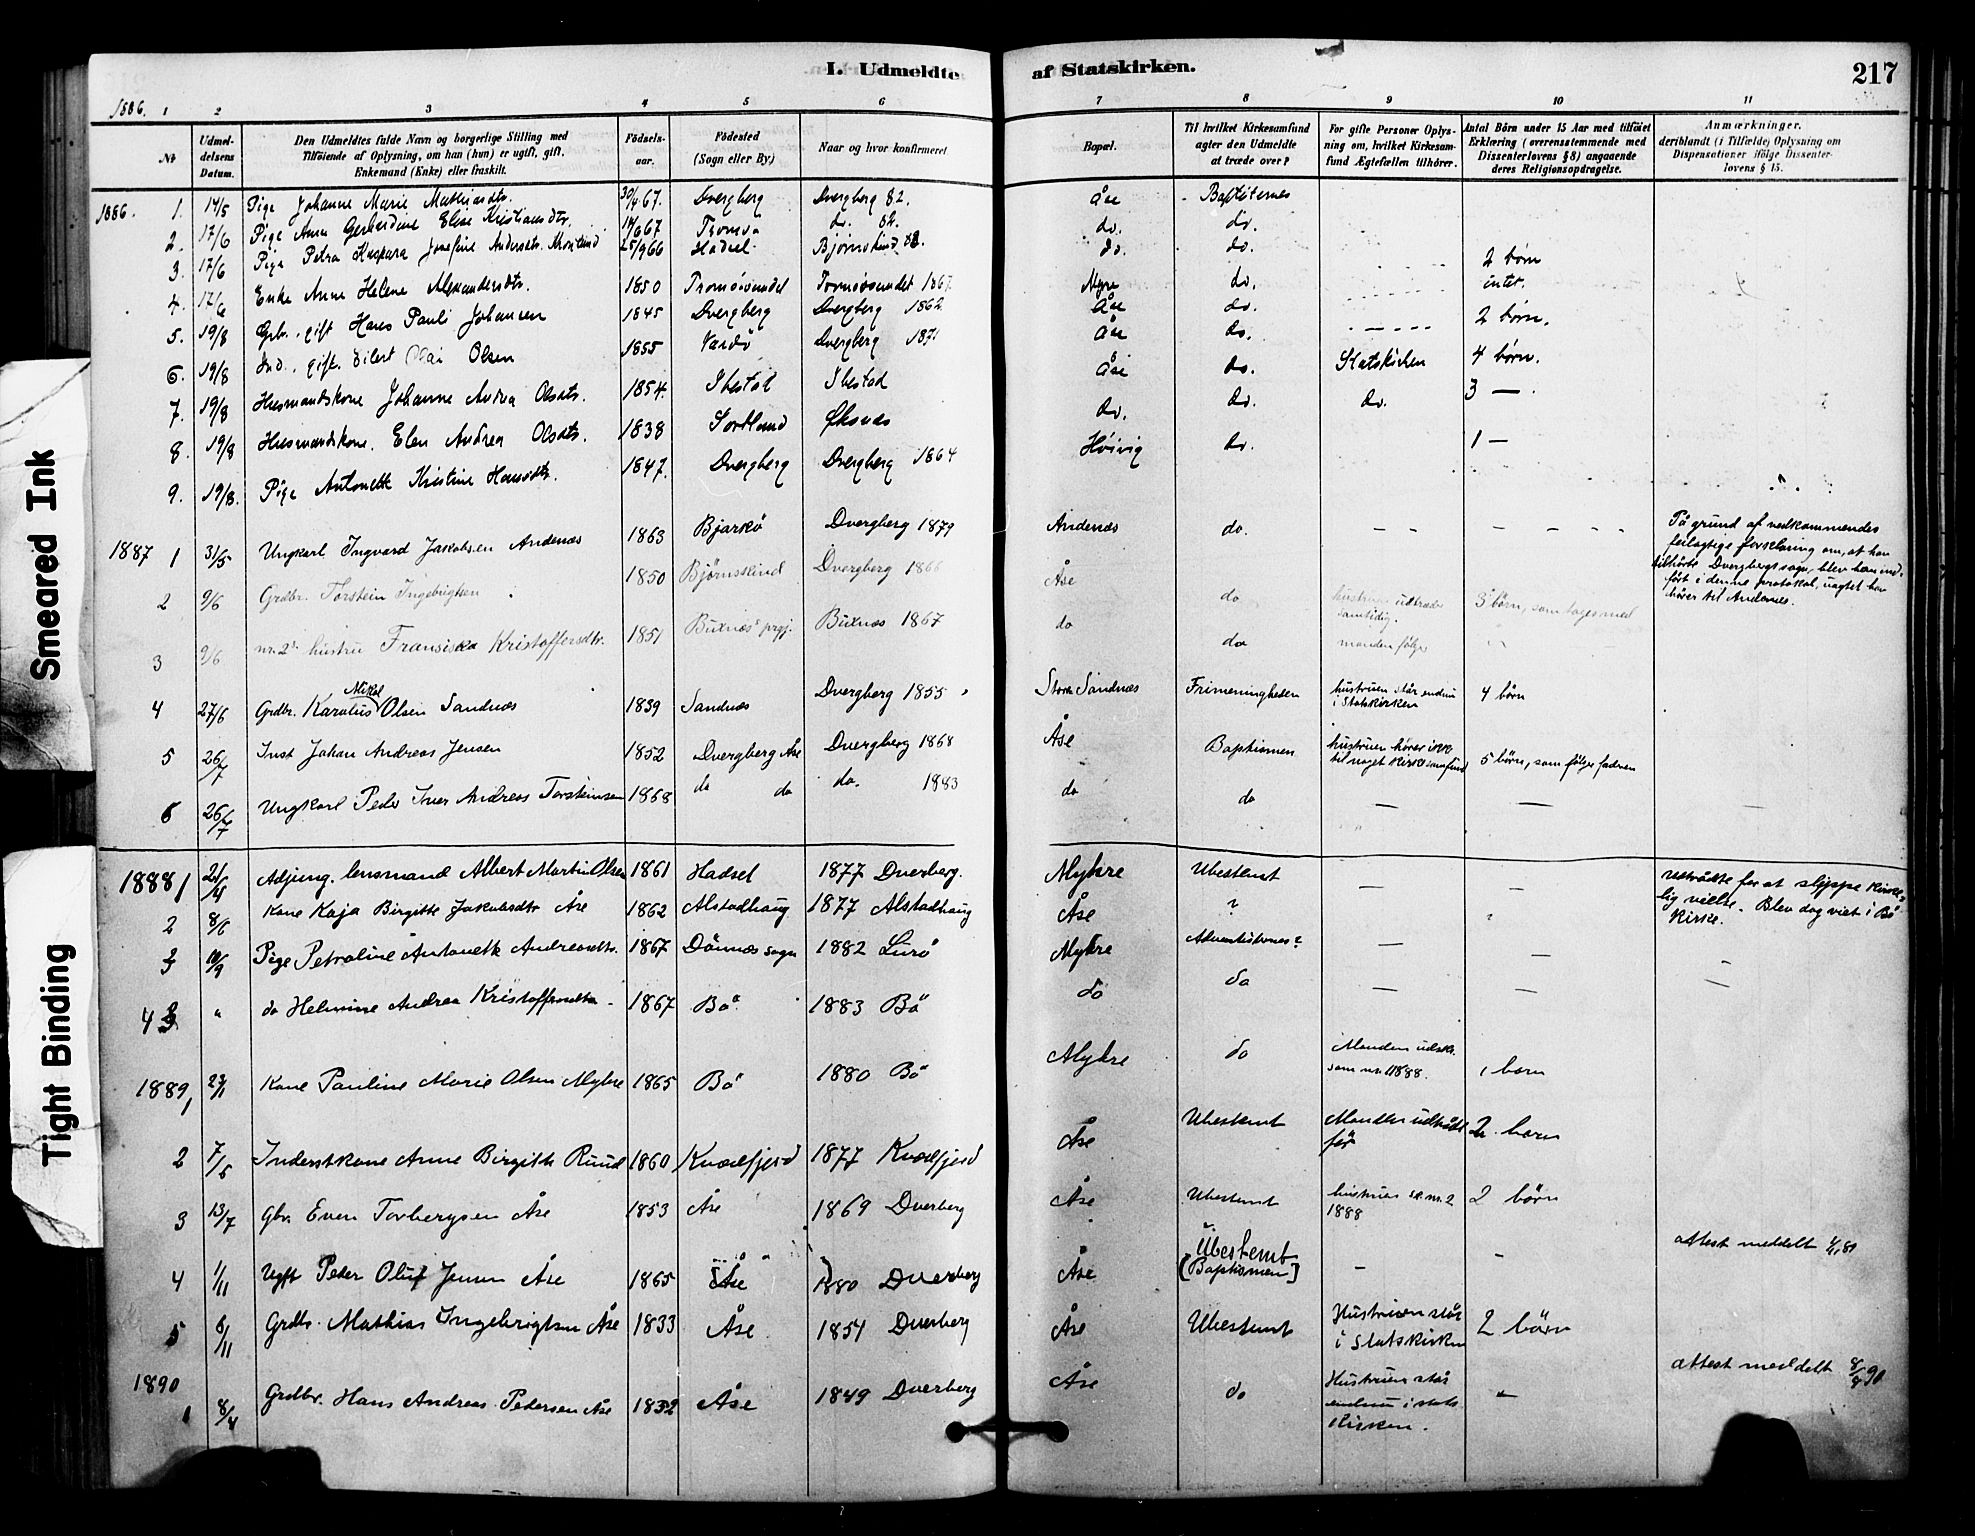 Smeared Ink
Tight Binding
I. Udmeldte af Statskirken. 217
1886. 1 2 3 4 5 6 7 8 9 10 11
Nr. Udmeldelsens Datum. Den Udmeldtes fulde Navn og borgerlige Stilling med Tilføiende af Oplysning, om han (hun) er ugift, gift, Enkemand (Enke) eller fraskilt. Fødselsaar. Fødested (Sogn eller By.) Naar og hvor konfirmeret Bopæl. Til hvilket Kirkesamfund agter den Udmeldte at træde over? For gifte Personer Oplysning om, hvilket Kirkesamfund Ægtefællen tilhører. Antal Børn under 15 Aar med tilføiet Erklæring (overensstemmende med Dissenterlovens § 8) angaaende deres Religionsopdragelse. Anmærkninger, deriblandt (i Tilfælde) Oplysning om Dispensationer ifølge Dissenterlovens § 15.
1886. 1. 14/5 Pige Johanne Marie Mathisdtr. 30/4 67. Dvergberg Dvergberg 82. Åse Baptisternes
2. 17/6 Pige Anna Gerhardine Elise Kristiansdtr. 14/6 67 Tromsø do. 82. do. do.
3. 17/6 Pige Petra Kaspara Josefine Andersdtr. 25/9 66 Hadsel Bjørnskind 82. do. do.
4. 17/6 Enke Anne Helene Alexandersdtr. 1850 Tromsøsundet Tromsøsundet 1867 Myre do. 2 børn
5. 19/8 Grbr. gift Hans Pauli Johansen 1845 Dvergberg Dvergberg 1862 Åse do. intet.
6. 19/8 Ind. gift. Eilert Olai Olsen 1855 Vardø Dvergberg 1871 Åse do. 2 børn.
7. 19/8 Husmandskone Johanne Andrea Olsdtr. 1854. Ibestad Ibestad Åse do. Statskirken 4 børn.
8. 19/8 Husmandskone. Elen Andrea Olsdtr. 1838 Sortland Øksnes do. do. do. 3 —
9. 19/8. Pige Antonette Kristine Hansdtr. 1847. Dvergberg Dvergberg 1864 Høivig do. 1 —
1887 1 31/5 Ungkarl Ingvard Jakobsen Andenæs 1863 Bjarkö Dvergberg 1879 Andenæs do. — — På grund af vedkommendes
feilagtige forklaring om, at han
tilhørte Dvergbergs sogn, blev han ind-
ført i denne protokol, uagtet han
hører til Andenæs.
2 9/6 Grdbr. Torstein Ingebrigtsen 1850 Bjørnskind Dvergberg 1866 Åse do hustruen udtræder samtidig. 3 børn, som tages med
3 9/6 nr. 2s hustru Fransiska Kristoffersdtr. 1851 Buxnæs prgj. Buxnæs 1867 do do manden følger
4 27/6 Grdbr. Karolus Nikol Olsen Sandnæs 1839 Sandnæs Dvergberg 1855 Store Sandnæs Frimenigheden hustruen står endnu i Statskirken 4 börn
5 26/7 Inst Johan Andreas Jensen 1852 Dvergberg Åse Dvergberg 1868 Åse Baptismen hustruen hører ikke til noget kirkesamfund 5 börn, som følger faderen
6 26/7 Ungkarl Peder Iver Andreas Torsteinsen 1868 do do do. 1883 do do — — —
1888 1 21/4 Adjung. lensmand Albert Martin Olsen 1861 Hadsel 1877 Dverberg. Myhre Ubestemt — — Udtrådte for at slippe kirke-
lig vielse. Blev dog viet i Bö
kirke.
2 8/6 Kone Kaja Birgitte Jakobsdtr Åse 1862 Alstadhaug 1877 Alstadhaug Åse ?
3 10/9 Pige Petroline Antonette Andreasdtr. 1867 Dönnæs sogn 1882 Lurö Myhre Adventisternes? — — —
4 " do Helmine Andrea Kristoffersdtr 1867 Bö 1883 Bö do do — — —
1889 1 23/1 Kone Pauline Marie Olsen Myhre 1865 Bö 1880 Bö Myhre do Manden udskr. som nr. 1 1888. 1 barn
2 7/5 Inderstkone Anne Birgitte Ruud 1860 Kvædfjord 1877 Kvædfjord Åse Ubestemt Manden udtrådt før 2 børn
3 13/7 Gbr. Even Torbergsen Åse 1853 Åse 1869 Dverberg Åse Ubestemt hustruen se nr. 2 1888 2 börn
4 1/11 Ugft Peder Oluf Jensen Åse 1865 Åse 1880 Dverberg Åse Ubestemt [Baptismen] — — attest meddelt
5 6/11 Grdbr. Mathias Ingebrigtsen Åse 1833 Åse 1851 Dverberg Åse Ubestemt Hustruen står i Statskirken 2 børn
1890 1 8/4 Grdbr. Hans Andreas Pedersen Åse 1832 Åse 1849 Dverberg Åse do Hustruen står endnu i statskirken. — attest meddelt 8/4 90